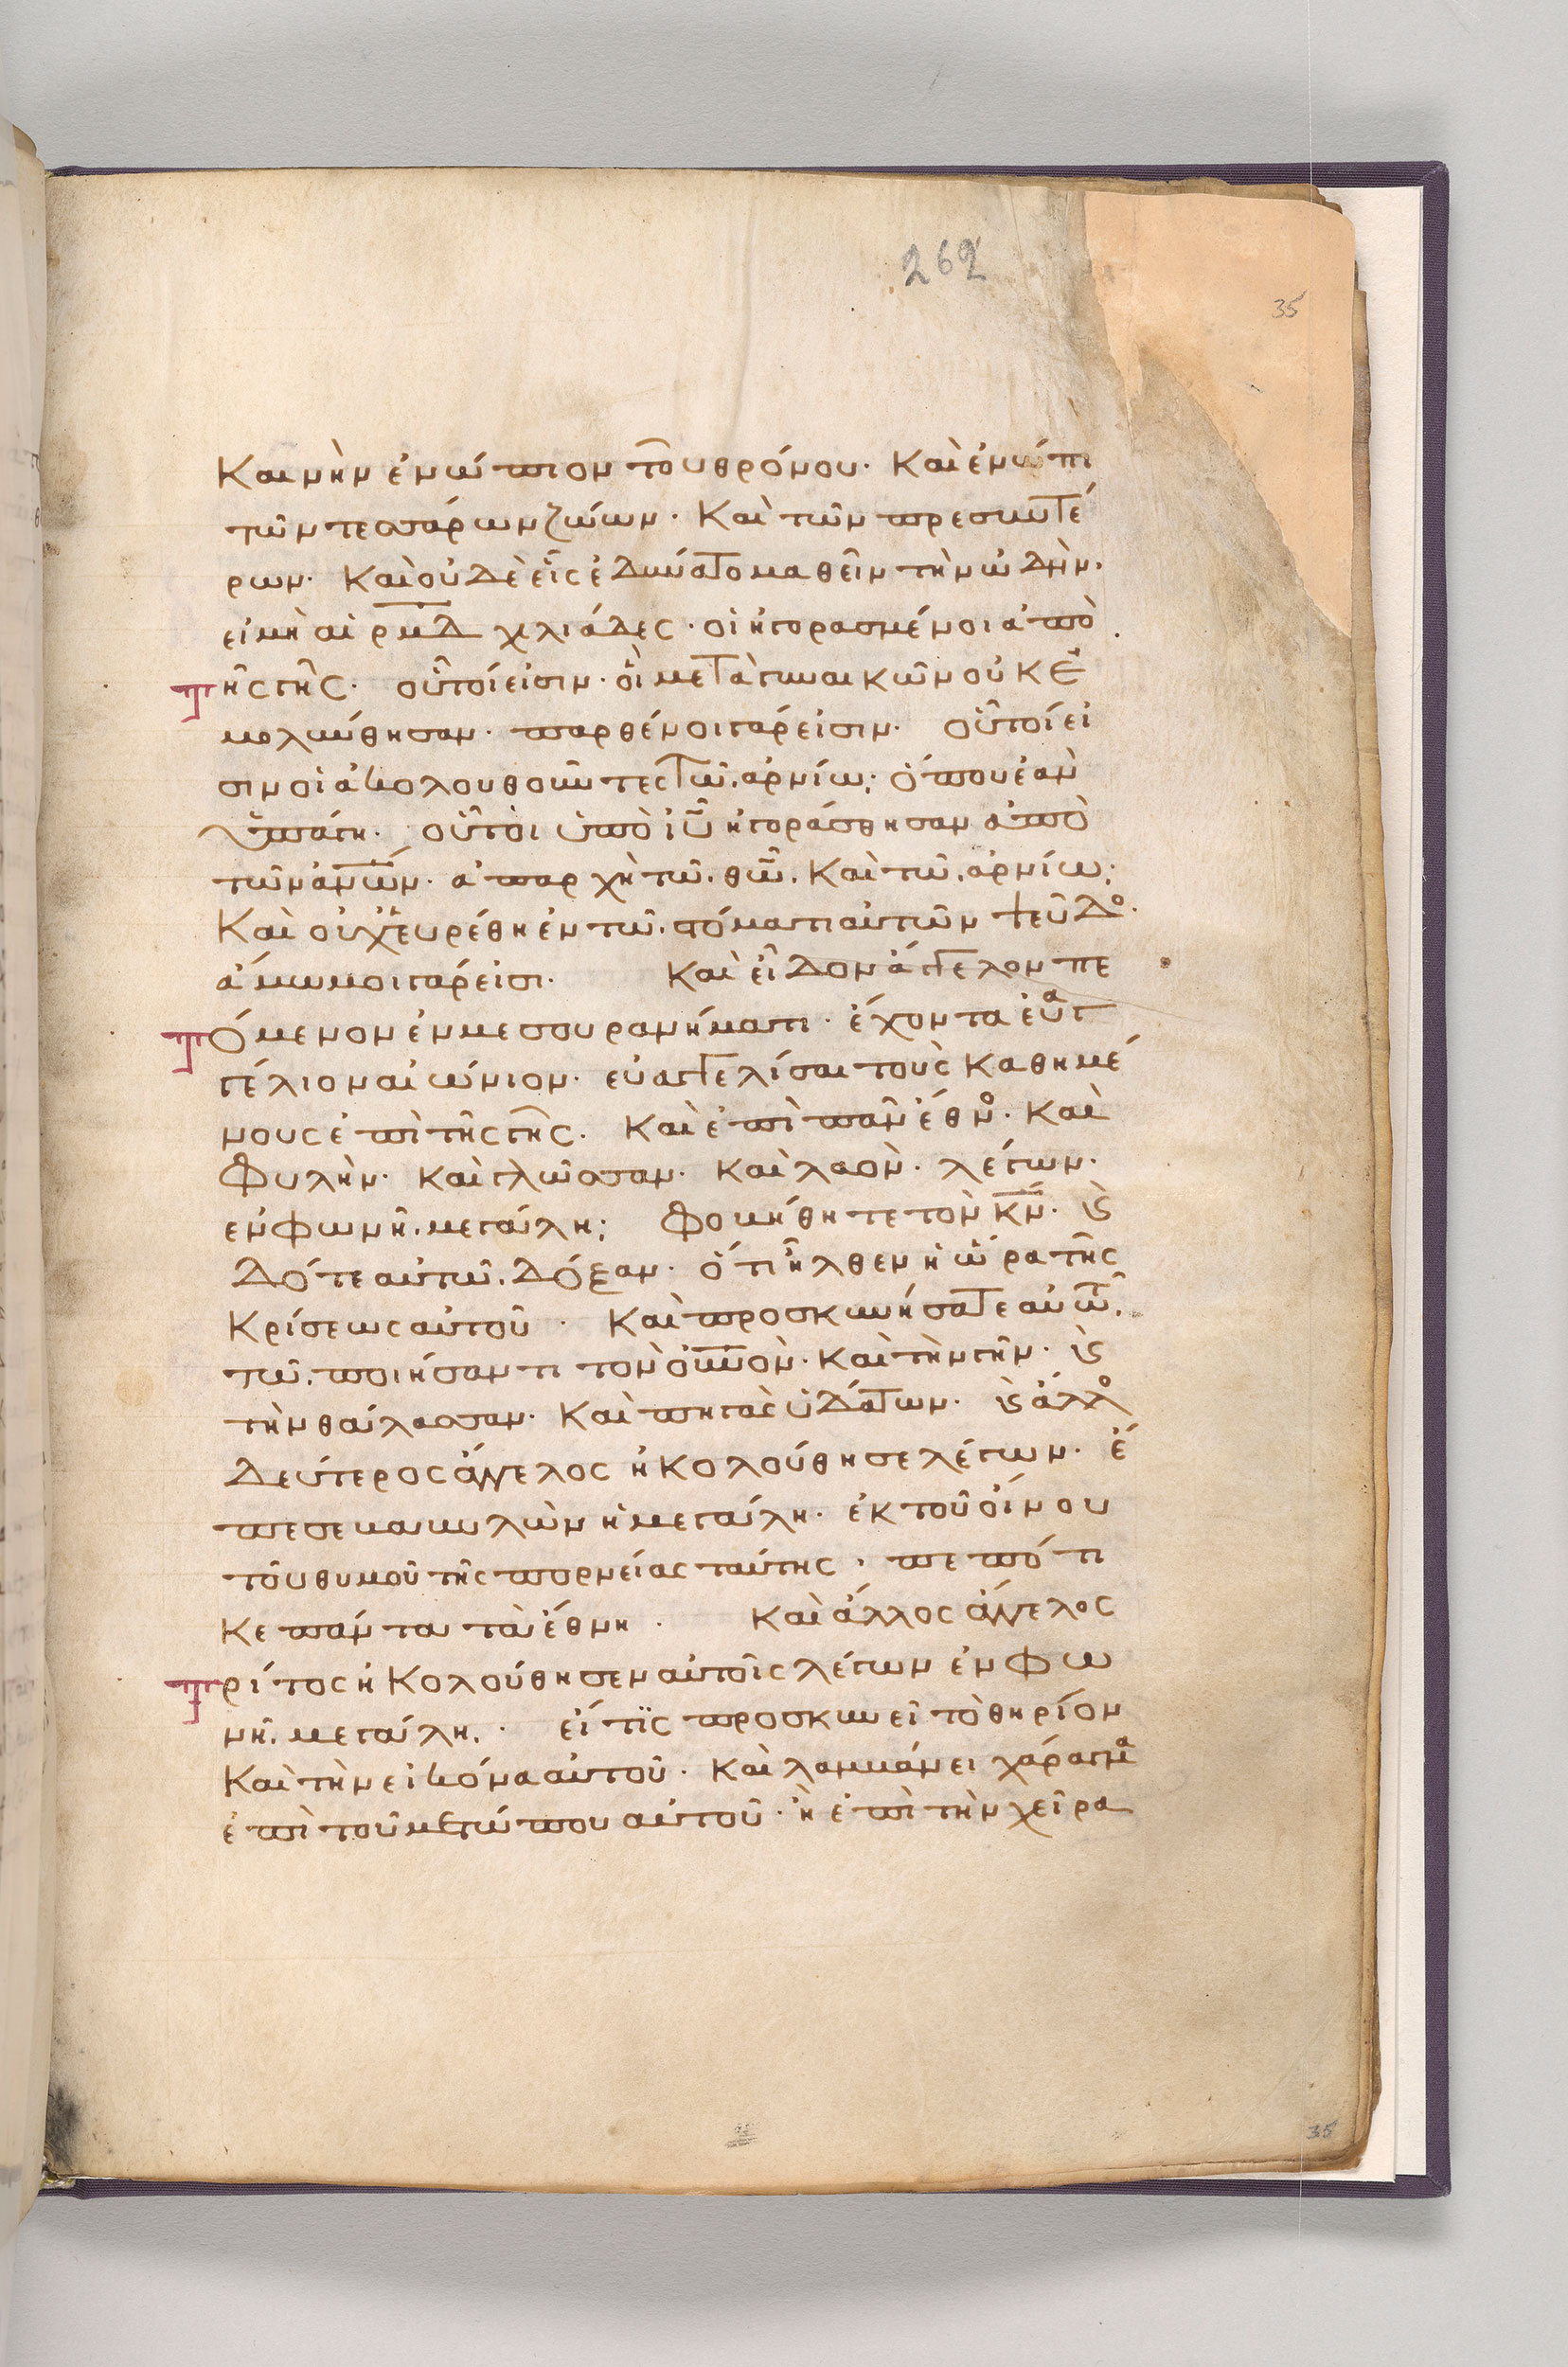 262
35
Καινὴν ἐνώπιον τοῦ θρόνου· Καὶ ἐνώπι
τῶν τεσσάρων ζώων· Καὶ τῶν πρεσβυτέ
ρων· Καὶ οὐδὲ εἷς ἐδύνατο μαθεῖν τὴν ὠδὴν·
εἰ μὴ αἱ ρμδ χιλιάδες· οἱ ἠγορασμένοι ἀπὸ
τῆς γῆς· οὗτοί εἰσιν· οἳ μετὰ γυναικῶν οὐκ ἐ
μολύνθησαν· παρθένοι γάρ εἰσιν· οὗτοί εἰ
σιν οἱ ἀκολουθοῦντες τῶ ἀρνίω· ὅπου ἐὰν
ὑπάγη· οὗτοι ὑπὸ ιυ ἠγοράσθησαν ἀπὸ
τῶν ανων· ἀπαρχὴ τῶ θω. Καὶ τῶ ἀρνίω·
Καὶ οὐχ εὑρέθη ἐν τῶ στόματι αὐτῶν ψεῦδο·
ἄμωμοι γάρ εἰσι· Καὶ εἶδον ἄγγελον πε
τόμενον ἐν μεσουρανήματι· ἔχοντα εὐαγ
γέλιον αἰώνιον· εὐαγγελίσαι τοὺς καθημέ
νους ἐπὶ τῆς γῆς· Καὶ ἐπὶ πᾶν ἔθνο· Καὶ
φυλὴν· Καὶ γλῶσσαν· Καὶ λαὸν· λέγων·
ἐν φωνῆ μεγάλη· Φοβήθητε τὸν κν· ϗ
Δότε αὐτῶ δόξαν· ὅτι ἦλθεν ἡ ὥρα τῆς
Κρίσεως αὐτοῦ· Καὶ προσκυνήσατε αὐτῶ
τῶ ποιήσαντι τὸν ουνον· Καὶ τὴν γῆν· ϗ
τὴν θάλασσαν· Καὶ πηγὰς ὑδάτων· ϗ ἄλλο
Δεύτερος ἄγγελος ἠκολούθησε λέγων· ἔ
πεσε βαβυλὼν ἡ μεγάλη· ἐκ τοῦ οἴνου
τοῦ θυμοῦ τῆς πορνείας ταύτης· πεπότι
Κε πάντα τὰ ἔθνη· Καὶ ἄλλος ἄγγελος
τρίτος ἠκολούθησεν αὐτοῖς λέγων ἐν φω
νῆ μεγάλη· εἴ τις προσκυνεῖ τὸ θηρίον
Καὶ τὴν εἰκόνα αὐτοῦ· Καὶ λαμβάνει χάραγμα
ἐπὶ τοῦ μετώπου αὐτοῦ· ἢ ἐπὶ τὴν χεῖρα
35